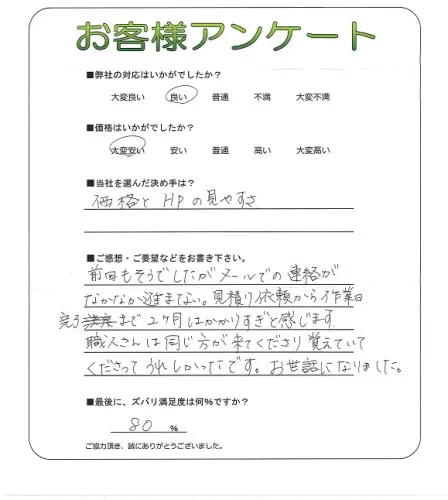 お客様アンケート
■弊社の対応はいかがでしたか？
大変良い 良い 普通 不満 大変不満
■価格はいかがでしたか？
大変安い 安い 普通 高い 大変高い
■当社を選んだ決め手は？
価格と HPの見やすさ
■ご感想・ご要望などをお書き下さい。
前回もそうでしたが メールでの連絡が
なかなか進まない。見積り依頼から作業日
完了まで 2ヶ月はかかりすぎと感じます
職人さんは同じ方が来てくださり覚えていて
くださって うれしかったです。お世話になりました。
■最後に、ズバリ満足度は何%ですか？
80 %
ご協力頂き、誠にありがとうございました。